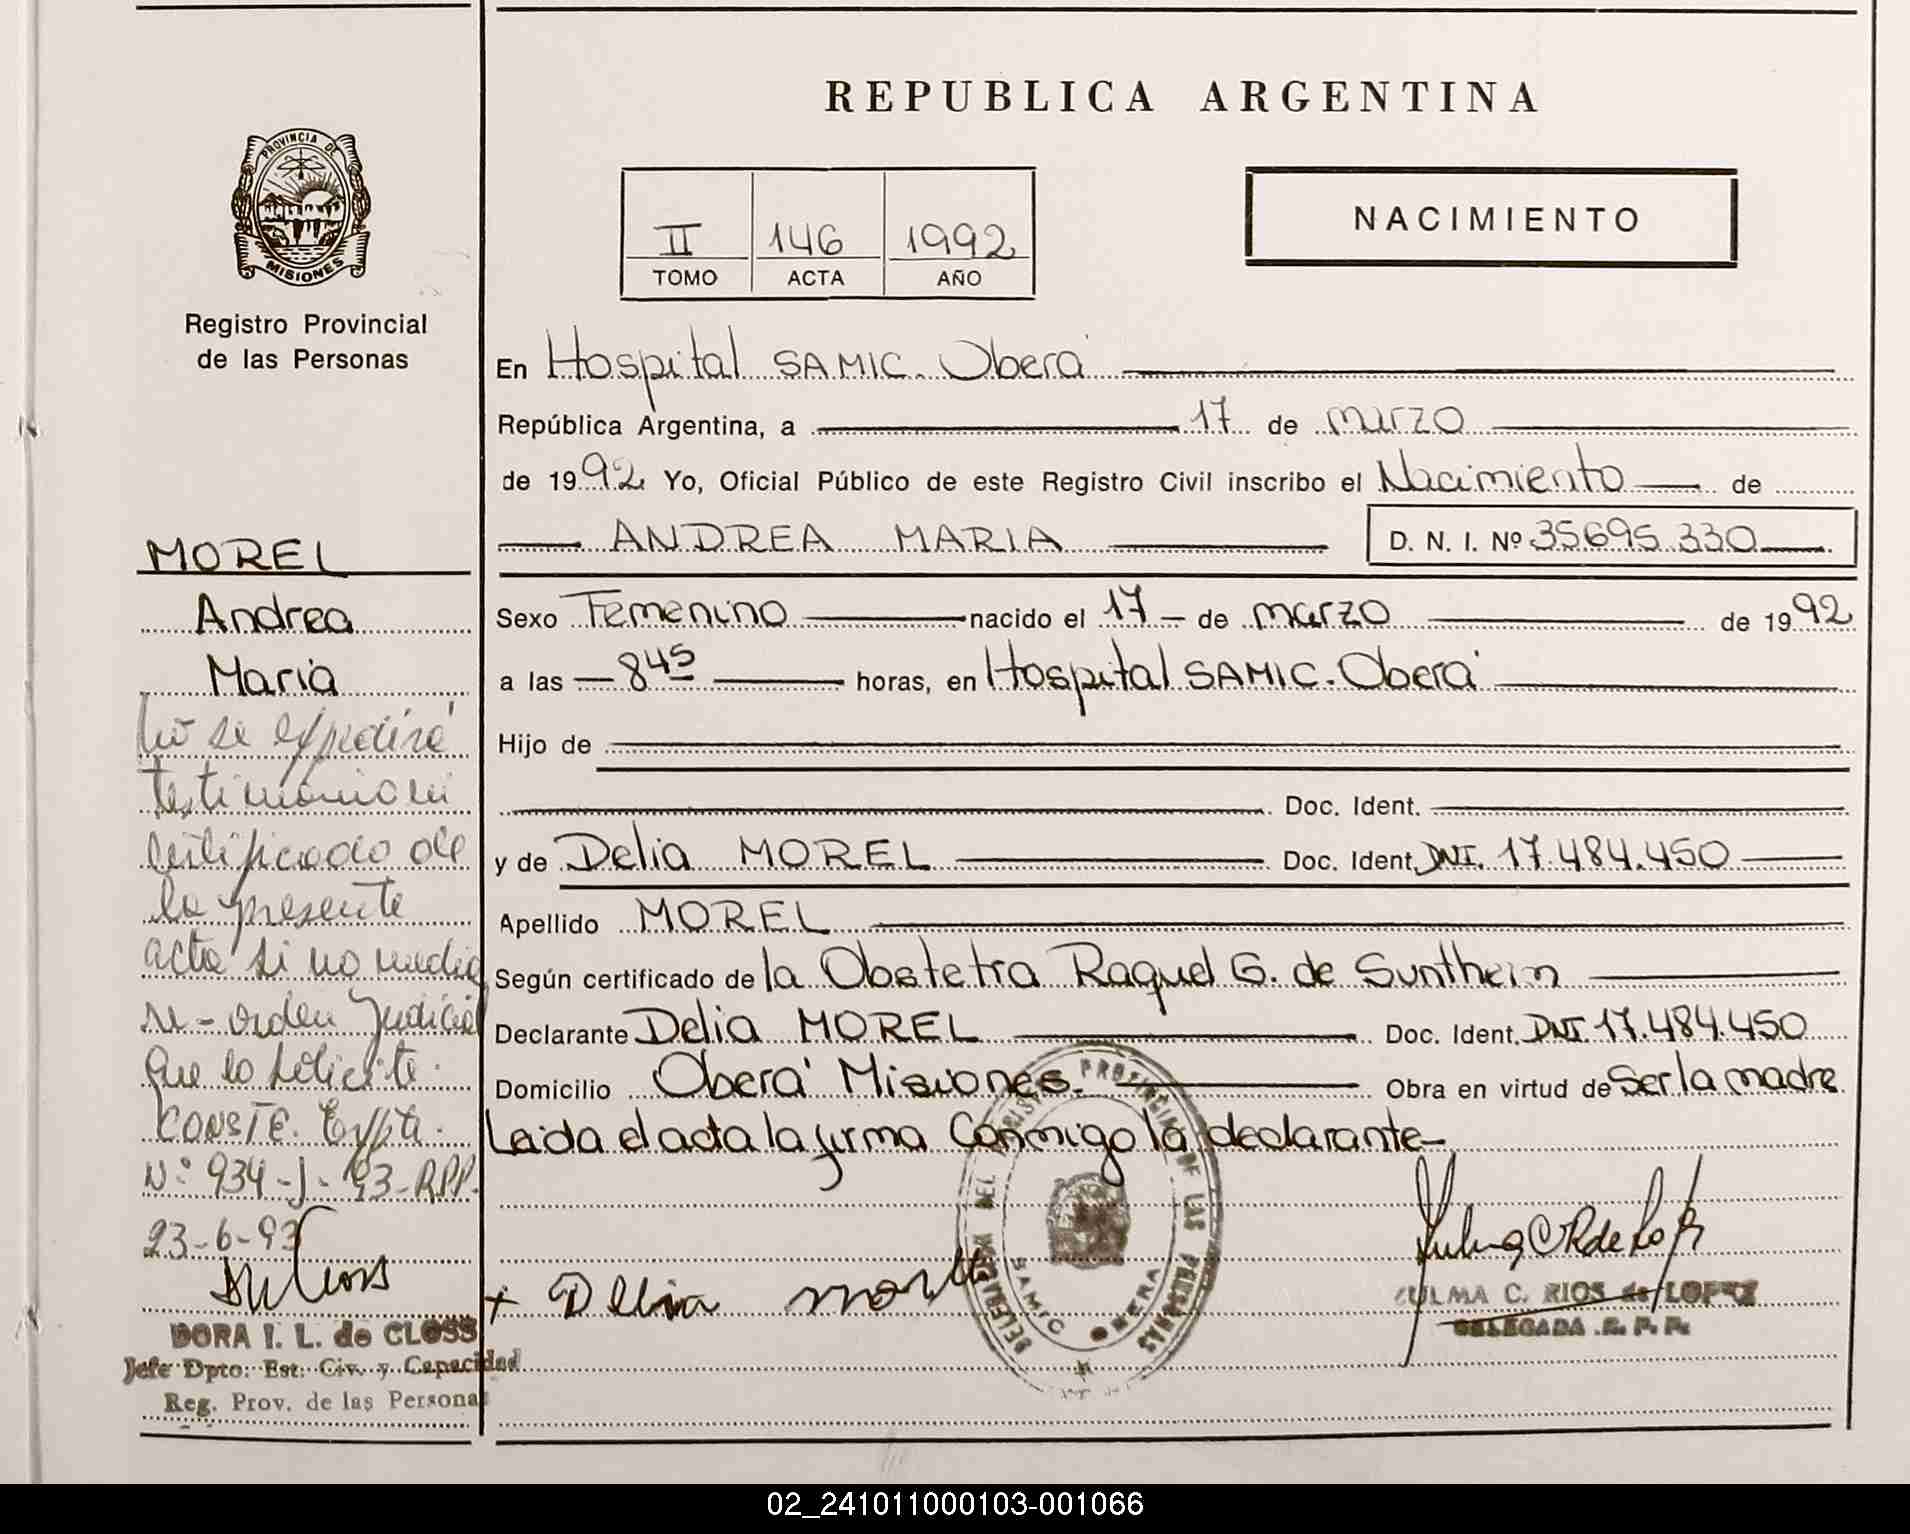 REPUBLICA ARGENTINA
PROVINCIA DE
MISIONES
Registro Provincial
de las Personas
II 146 1992
TOMO ACTA AÑO
NACIMIENTO
En Hospital SAMIC. Oberá
República Argentina, a 17 de marzo
de 1992 Yo, Oficial Público de este Registro Civil inscribo el Nacimiento de
ANDREA MARIA D. N. I. Nº 35695.330
Sexo Femenino nacido el 17 de marzo de 1992
a las 8 45 horas, en Hospital SAMIC. Oberá
Hijo de
Doc. Ident.
y de Delia MOREL Doc. Ident. DNI. 17.484.450
Apellido MOREL
Según certificado de la Obstetra Raquel G. de Sunthein
Declarante Delia MOREL Doc. Ident. DNI. 17.484.450
Domicilio Oberá Misiones. Obra en virtud de Ser la madre
Leida el acta la firma Conmigo la declarante
MOREL
Andrea
Maria
No se expedirá
testimonio ni
certificado de
la presente
acta si no media
re - orden Judicial
que lo solicite.
CONSTE. Expte.
Nº 934-J-93-RPP.
23-6-93
DORA I. L. de CLOSS
Jefe Dpto. Est. Civ. y Capacidad
Reg. Prov. de las Personas
+ Delia Morel
SAMIC OBERA
ZULMA C. RIOS de LOPEZ
DELEGADA R. P. P.
02_241011000103-001066